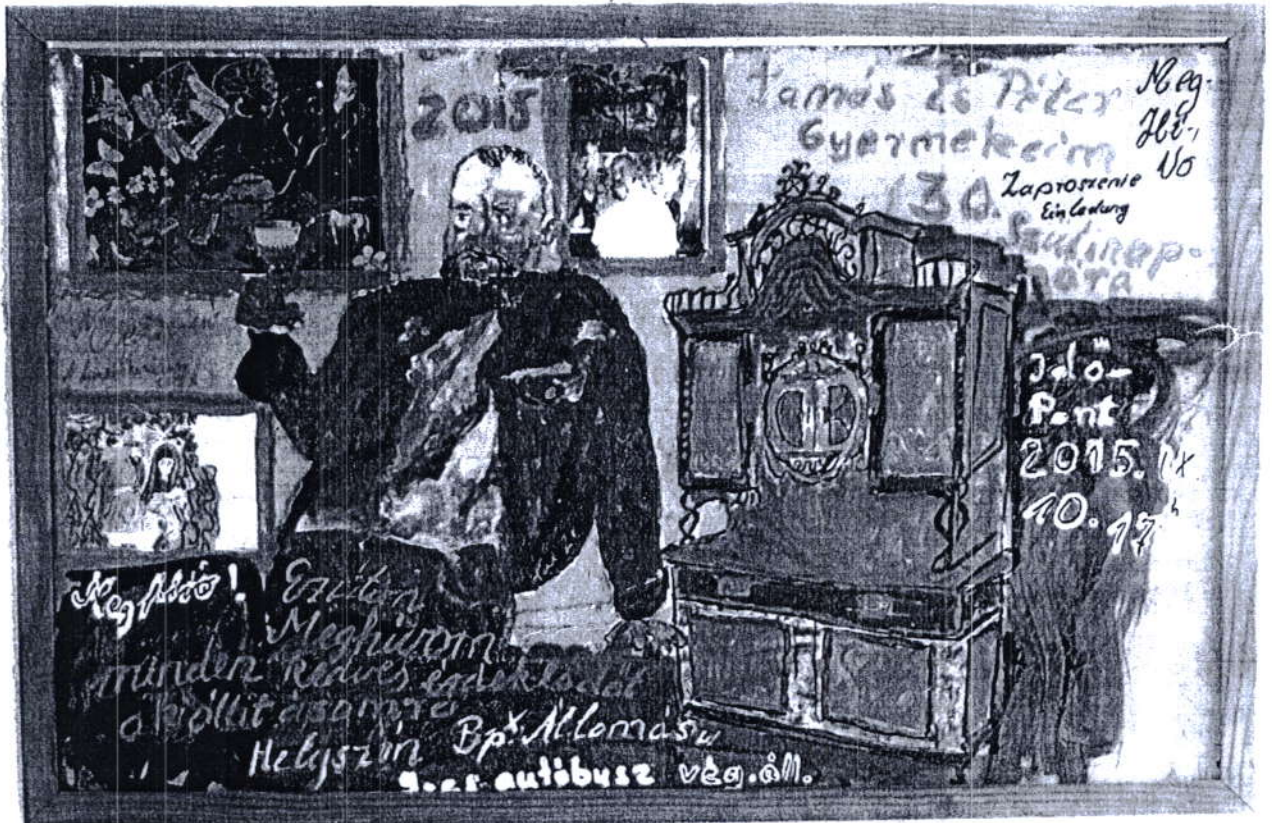 2015
Tamás és Péter
Gyermekeim
30.
Meg-
Hí-
vó
Zaproszenie
Einladung
Idő-
Pont
2015. IX
10. 17h
Meghívó!
Ezúton
Meghívom
minden kedves érdeklődőt
a kiállításomra
Helyszín Bp. X. Állomás u
9.es autóbusz vég.áll.